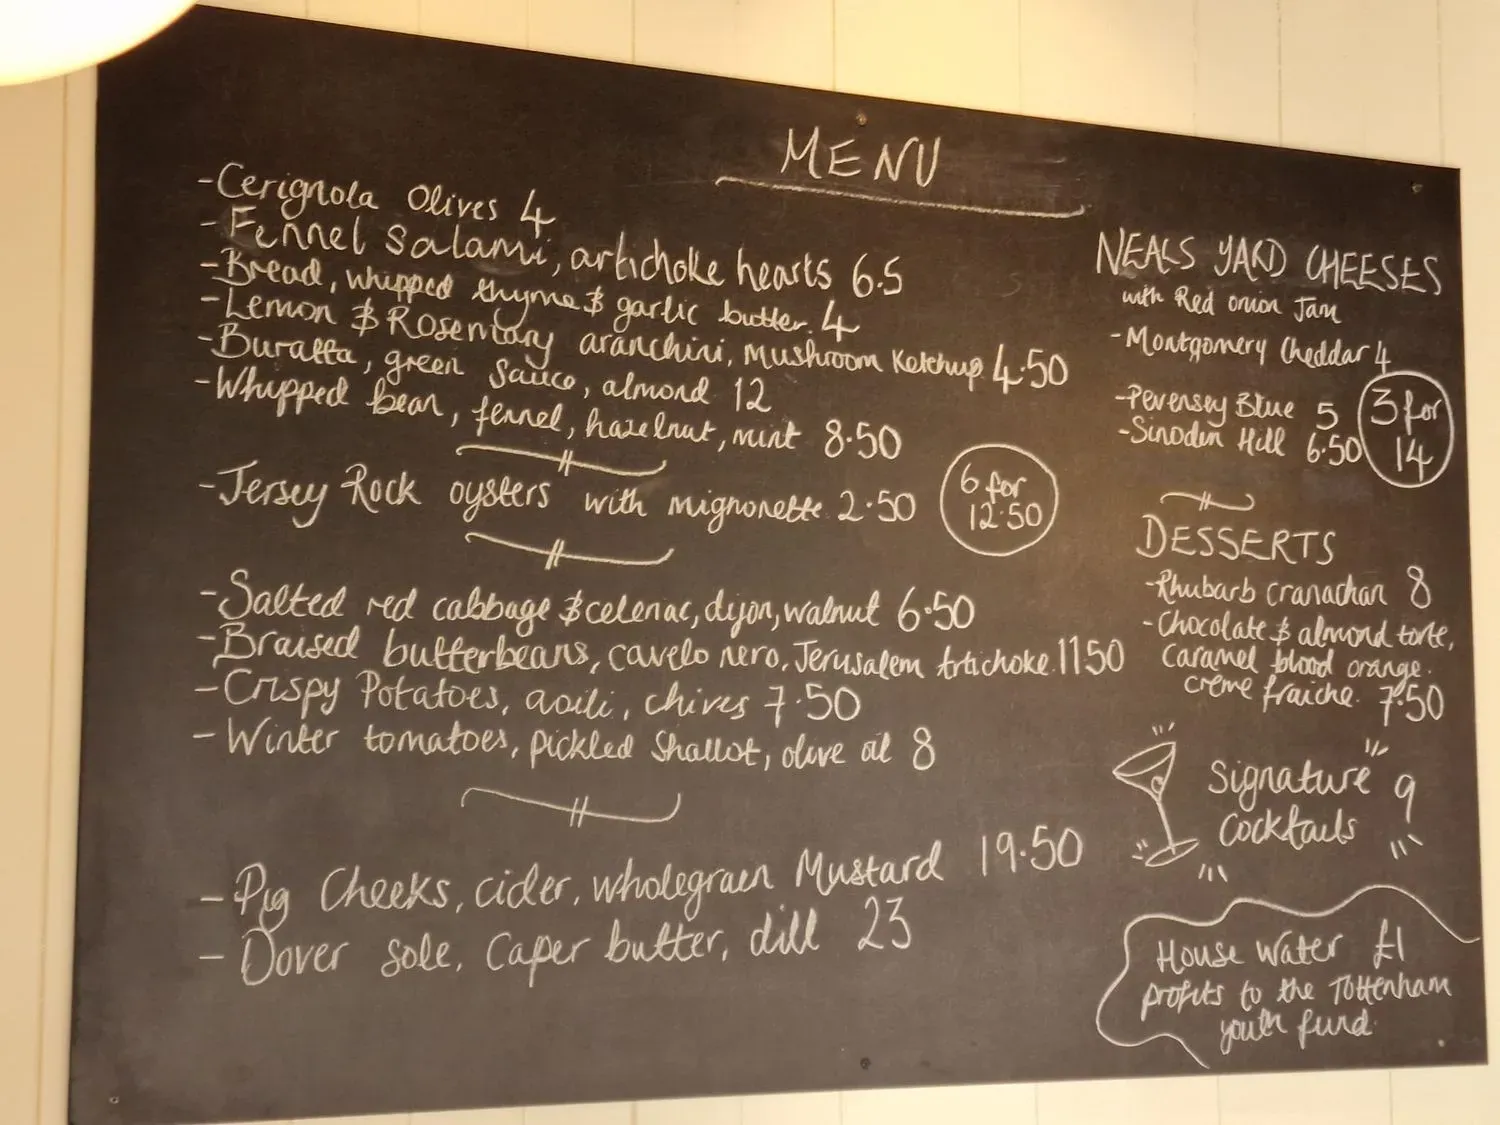 MENU
-Cerignola Olives 4
- Fennel Salami, artichoke hearts 6.5
-Bread, whipped thyme & garlic butter. 4
-Lemon & Rosemary aranchini, Mushroom Ketchup 4.50
-Buratta, green sauce, almond 12
-Whipped bean, fennel, hazelnut, mint 8.50
-Jersey Rock oysters with mignonette 2.50
6 for
12.50
-Salted red cabbage & celeriac, dijon, walnut 6.50
-Braised butterbeans, cavelo nero, Jerusalem Artichoke. 11.50
-Crispy Potatoes, aoili, chives 7.50
- Winter tomatoes, pickled Shallot, olive oil 8
- Pig Cheeks, cider, wholegrain Mustard 19.50
- Dover sole, Caper butter, dill 23
NEALS YARD CHEESES
with Red onion Jam
-Montgomery Cheddar 4
-Pevensey Blue 5
-Sinodun Hill 6.50
3 for
14
DESSERTS
-Rhubarb cranachan 8
-Chocolate & almond torte,
caramel blood orange.
creme fraiche. 7.50
Signature 9
Cocktails
House Water £1
profits to the Tottenham
youth fund.